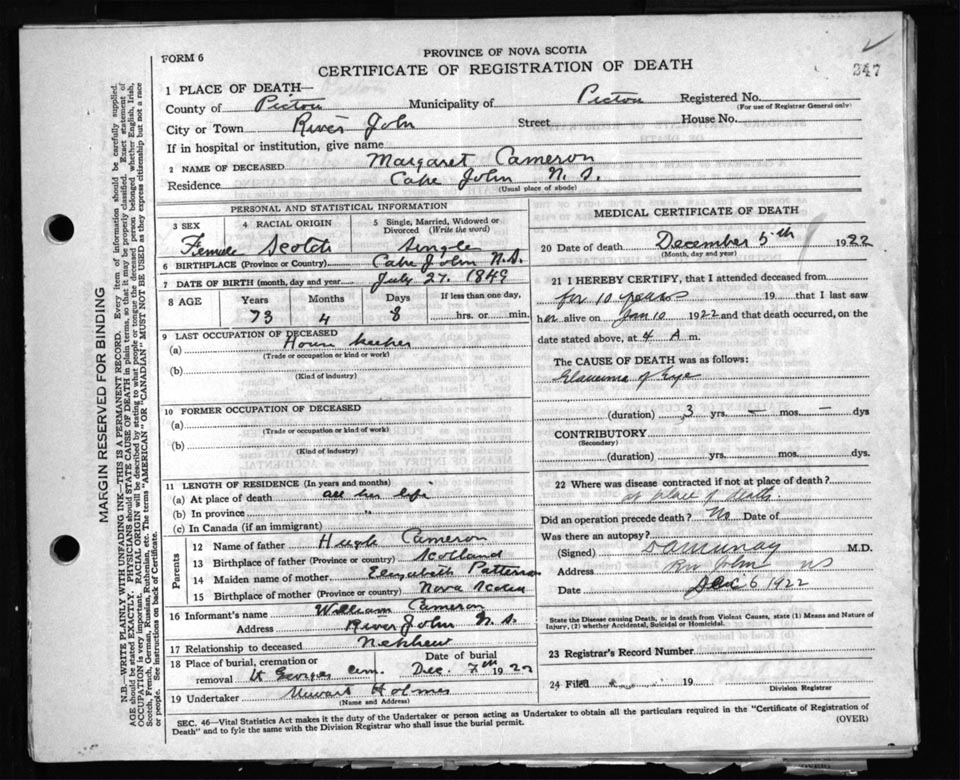 PROVINCE OF NOVA SCOTIA
FORM 6
CERTIFICATE OF REGISTRATION OF DEATH
247
1 PLACE OF DEATH—
County of Pictou Municipality of Pictou Registered No.
(For use of Registrar General only)
City or Town River John Street House No.
If in hospital or institution, give name
2 NAME OF DECEASED Margaret Cameron
Residence Cape John N. S.
(Usual place of abode)
PERSONAL AND STATISTICAL INFORMATION
3 SEX 4 RACIAL ORIGIN 5 Single, Married, Widowed or Divorced (Write the word)
Female Scotch Single
6 BIRTHPLACE (Province or Country) Cape John N.S.
7 DATE OF BIRTH (month, day and year) July 27. 1849
8 AGE Years Months Days If less than one day,
73 4 8 hrs. or min.
9 LAST OCCUPATION OF DECEASED
(a) House keeper
(Trade or occupation or kind or work)
(b)
(Kind of industry)
10 FORMER OCCUPATION OF DECEASED
(a)
(Trade or occupation or kind of work)
(b)
(Kind of industry)
11 LENGTH OF RESIDENCE (In years and months)
(a) At place of death all her life
(b) In province "
(c) In Canada (if an immigrant)
Parents
12 Name of father Hugh Cameron
13 Birthplace of father (Province or country) Scotland
14 Maiden name of mother Elizabeth Patterson
15 Birthplace of mother (Province or country) Nova Scotia
16 Informant's name William Cameron
Address River John N. S.
17 Relationship to deceased Nephew
18 Place of burial, cremation or removal St Georges Cem. Date of burial Dec. 7th 1922
19 Undertaker Holmes
(Name and Address)
MEDICAL CERTIFICATE OF DEATH
20 Date of death December 5th 1922
(Month, day and year)
21 I HEREBY CERTIFY, that I attended deceased from
for 10 years 19 that I last saw
her alive on Jan 10 1922 and that death occurred, on the
date stated above, at 4 A m.
The CAUSE OF DEATH was as follows:
Glaucoma of Eye
(duration) 3 yrs. — mos. — dys
CONTRIBUTORY
(Secondary)
(duration) yrs. mos. dys.
22 Where was disease contracted if not at place of death?
at place of death.
Did an operation precede death? No Date of
Was there an autopsy?
(Signed) M.D.
Address Riv John NS
Date Dec 6 1922
State the Disease causing Death, or in death from Violent Causes, state (1) Means and Nature of Injury, (2) whether Accidental, Suicidal or Homicidal.
23 Registrar's Record Number
24 Filed 19
Division Registrar
SEC. 46—Vital Statistics Act makes it the duty of the Undertaker or person acting as Undertaker to obtain all the particulars required in the "Certificate of Registration of
Death" and to fyle the same with the Division Registrar who shall issue the burial permit.
(OVER)
MARGIN RESERVED FOR BINDING
N.B.—WRITE PLAINLY WITH UNFADING INK—THIS IS A PERMANENT RECORD. Every item of information should be carefully supplied.
AGE should be stated EXACTLY. PHYSICIANS should STATE CAUSE OF DEATH in plain terms, so that it may be properly classified. Exact statement of
OCCUPATION is very important. RACIAL ORIGIN will be described by stating to what people or tongue the deceased person belonged whether English, Irish,
Scotch, French, German, Russian, Ruthenian, etc. The terms "AMERICAN" OR "CANADIAN" MUST NOT BE USED as they express citizenship but not a race
or people. See instructions on back of Certificate.